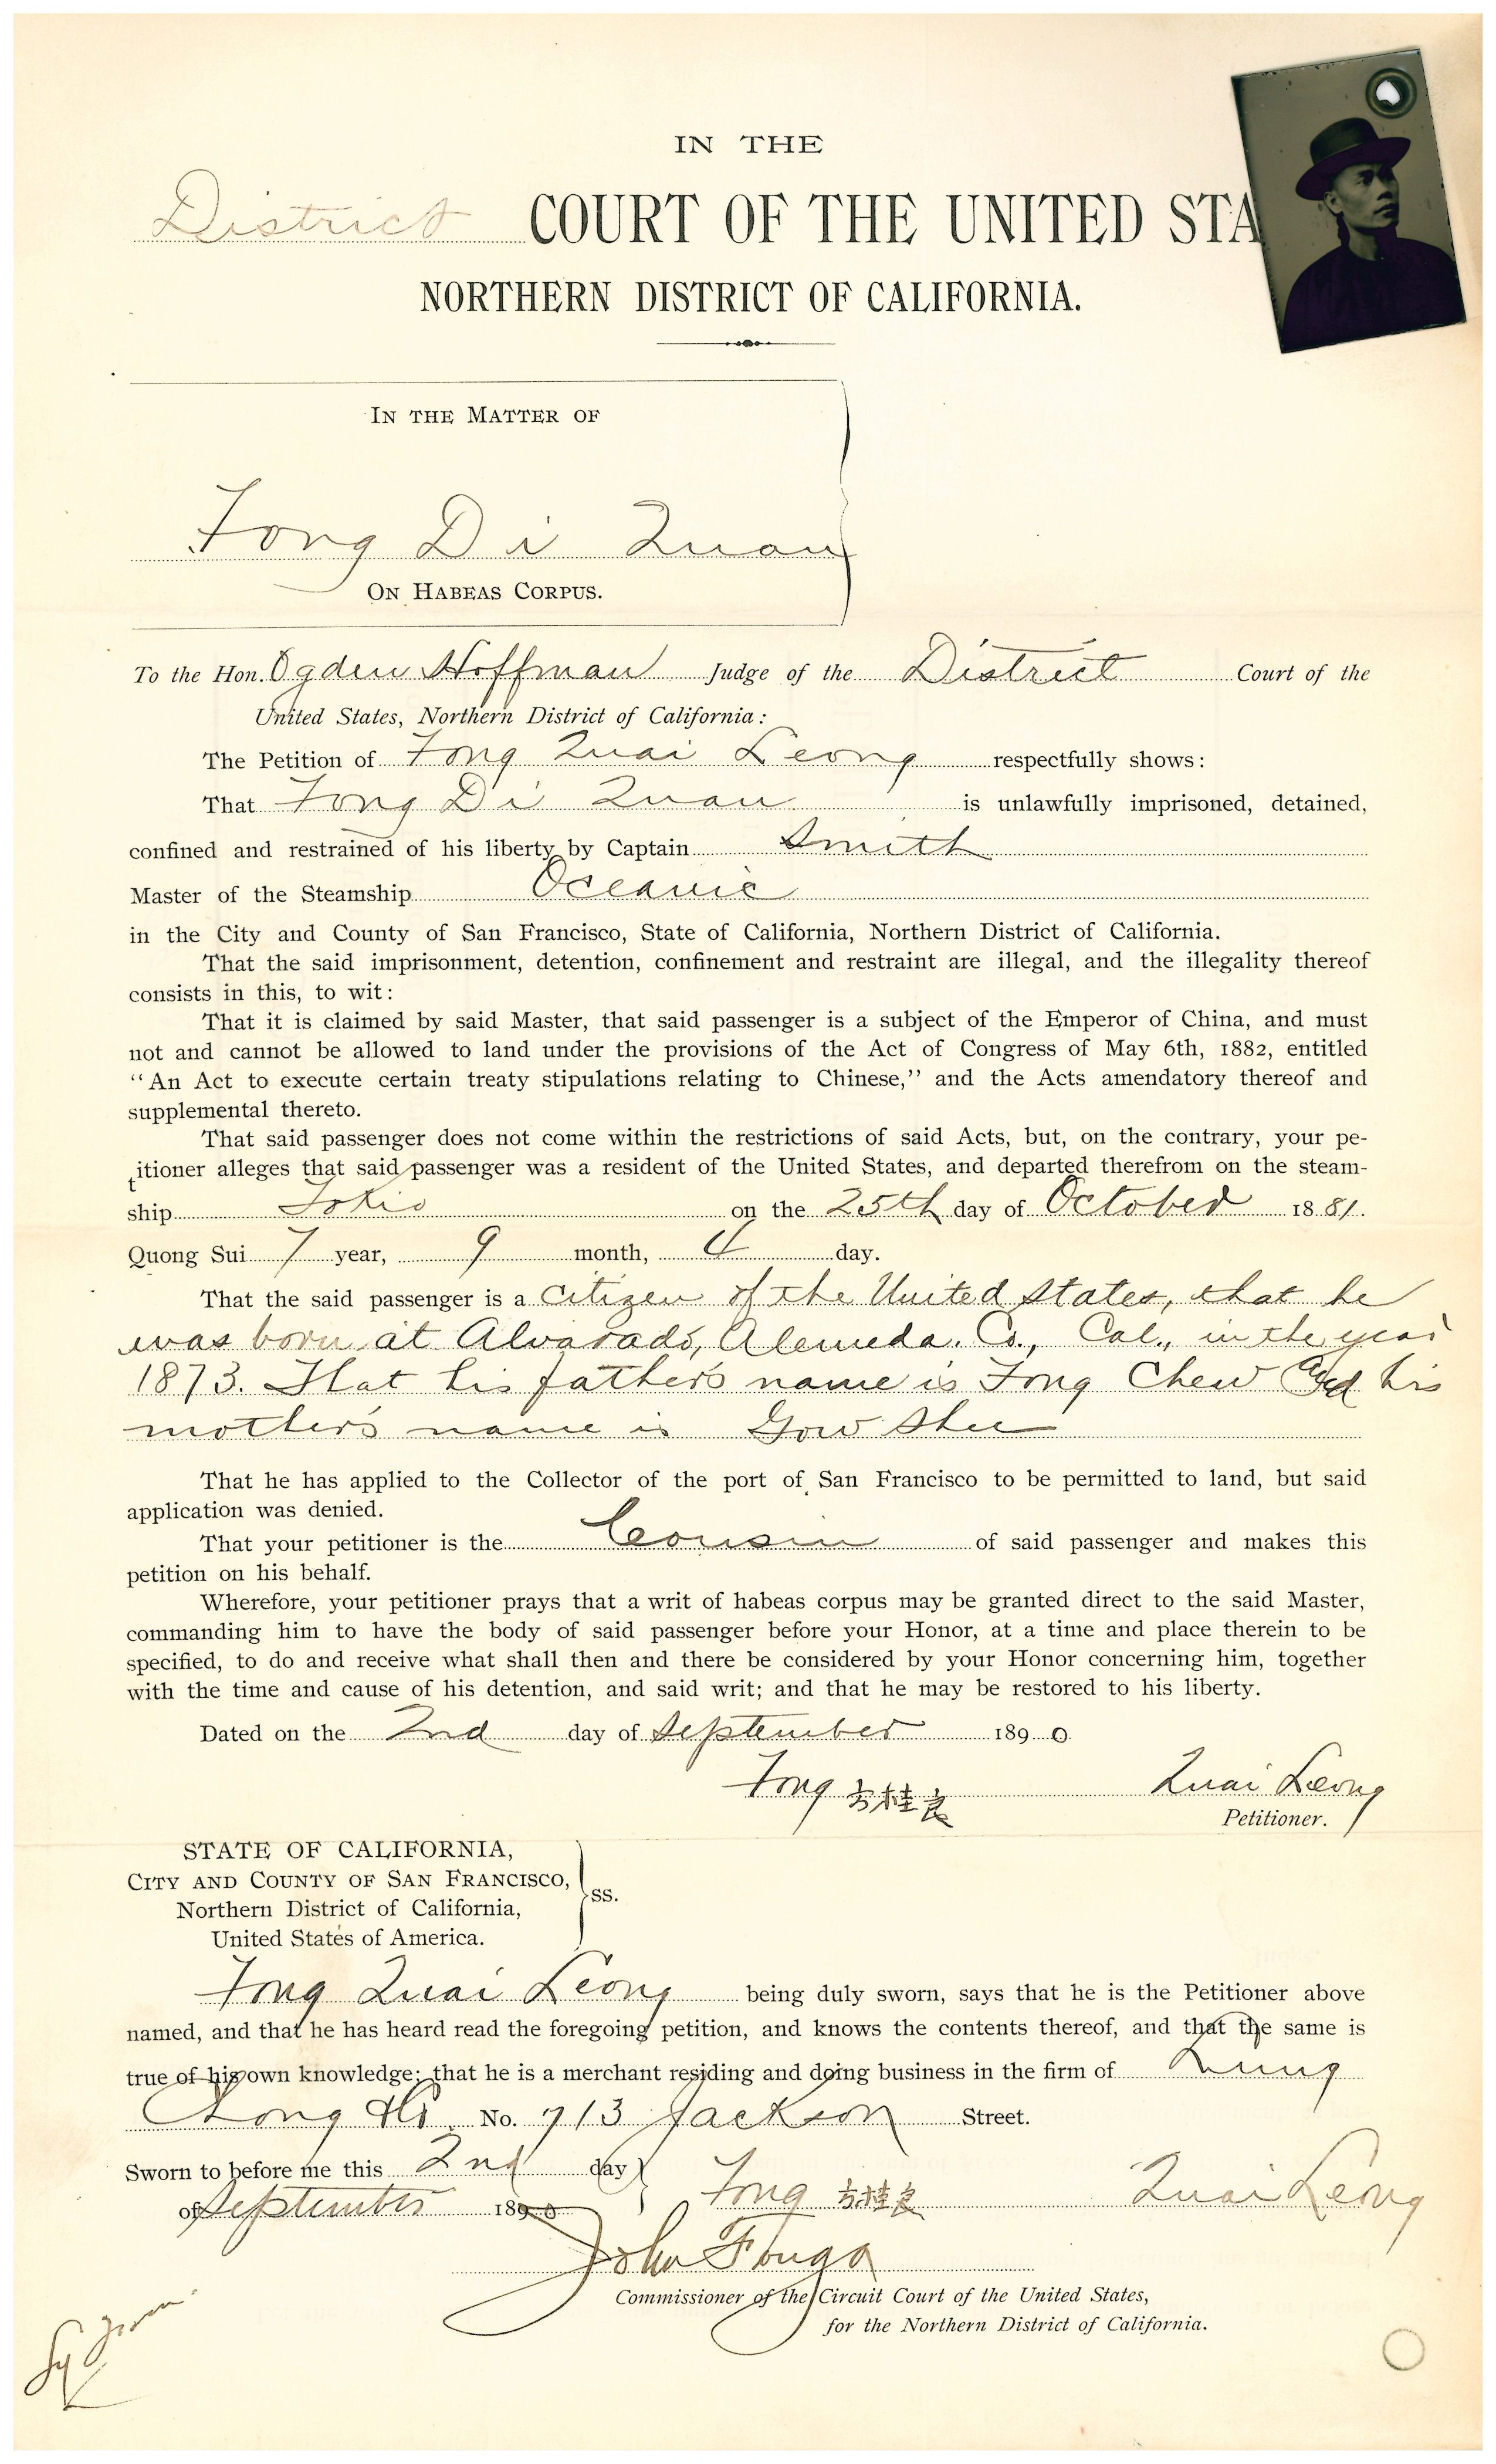 IN THE
District COURT OF THE UNITED STA
NORTHERN DISTRICT OF CALIFORNIA.
IN THE MATTER OF
Fong Di Quan
ON HABEAS CORPUS.
To the Hon. Ogden Hoffman Judge of the District Court of the
United States, Northern District of California:
The Petition of Fong Quai Leong respectfully shows:
That Fong Di Quan is unlawfully imprisoned, detained,
confined and restrained of his liberty by Captain Smith
Master of the Steamship Oceanic
in the City and County of San Francisco, State of California, Northern District of California.
That the said imprisonment, detention, confinement and restraint are illegal, and the illegality thereof
consists in this, to wit:
That it is claimed by said Master, that said passenger is a subject of the Emperor of China, and must
not and cannot be allowed to land under the provisions of the Act of Congress of May 6th, 1882, entitled
"An Act to execute certain treaty stipulations relating to Chinese," and the Acts amendatory thereof and
supplemental thereto.
That said passenger does not come within the restrictions of said Acts, but, on the contrary, your pe-
titioner alleges that said passenger was a resident of the United States, and departed therefrom on the steam-
ship Tokio on the 25th day of October 1881.
Quong Sui 7 year, 9 month, 4 day.
That the said passenger is a citizen of the United States, that he
was born at Alvarado, Alameda. Co., Cal., in the year
1873. That his father's name is Fong Chew and his
mother's name is Gow Shee
That he has applied to the Collector of the port of San Francisco to be permitted to land, but said
application was denied.
That your petitioner is the Cousin of said passenger and makes this
petition on his behalf.
Wherefore, your petitioner prays that a writ of habeas corpus may be granted direct to the said Master,
commanding him to have the body of said passenger before your Honor, at a time and place therein to be
specified, to do and receive what shall then and there be considered by your Honor concerning him, together
with the time and cause of his detention, and said writ; and that he may be restored to his liberty.
Dated on the 2nd day of September 1890
Fong 方桂良 Quai Leong
Petitioner.
STATE OF CALIFORNIA,
CITY AND COUNTY OF SAN FRANCISCO,
Northern District of California,
United States of America.
ss.
Fong Quai Leong being duly sworn, says that he is the Petitioner above
named, and that he has heard read the foregoing petition, and knows the contents thereof, and that the same is
true of his own knowledge; that he is a merchant residing and doing business in the firm of
Chong No. 713 Jackson Street.
Sworn to before me this 2nd day
of September 1890
Fong 方桂良 Quai Leong
John
Commissioner of the Circuit Court of the United States,
for the Northern District of California.